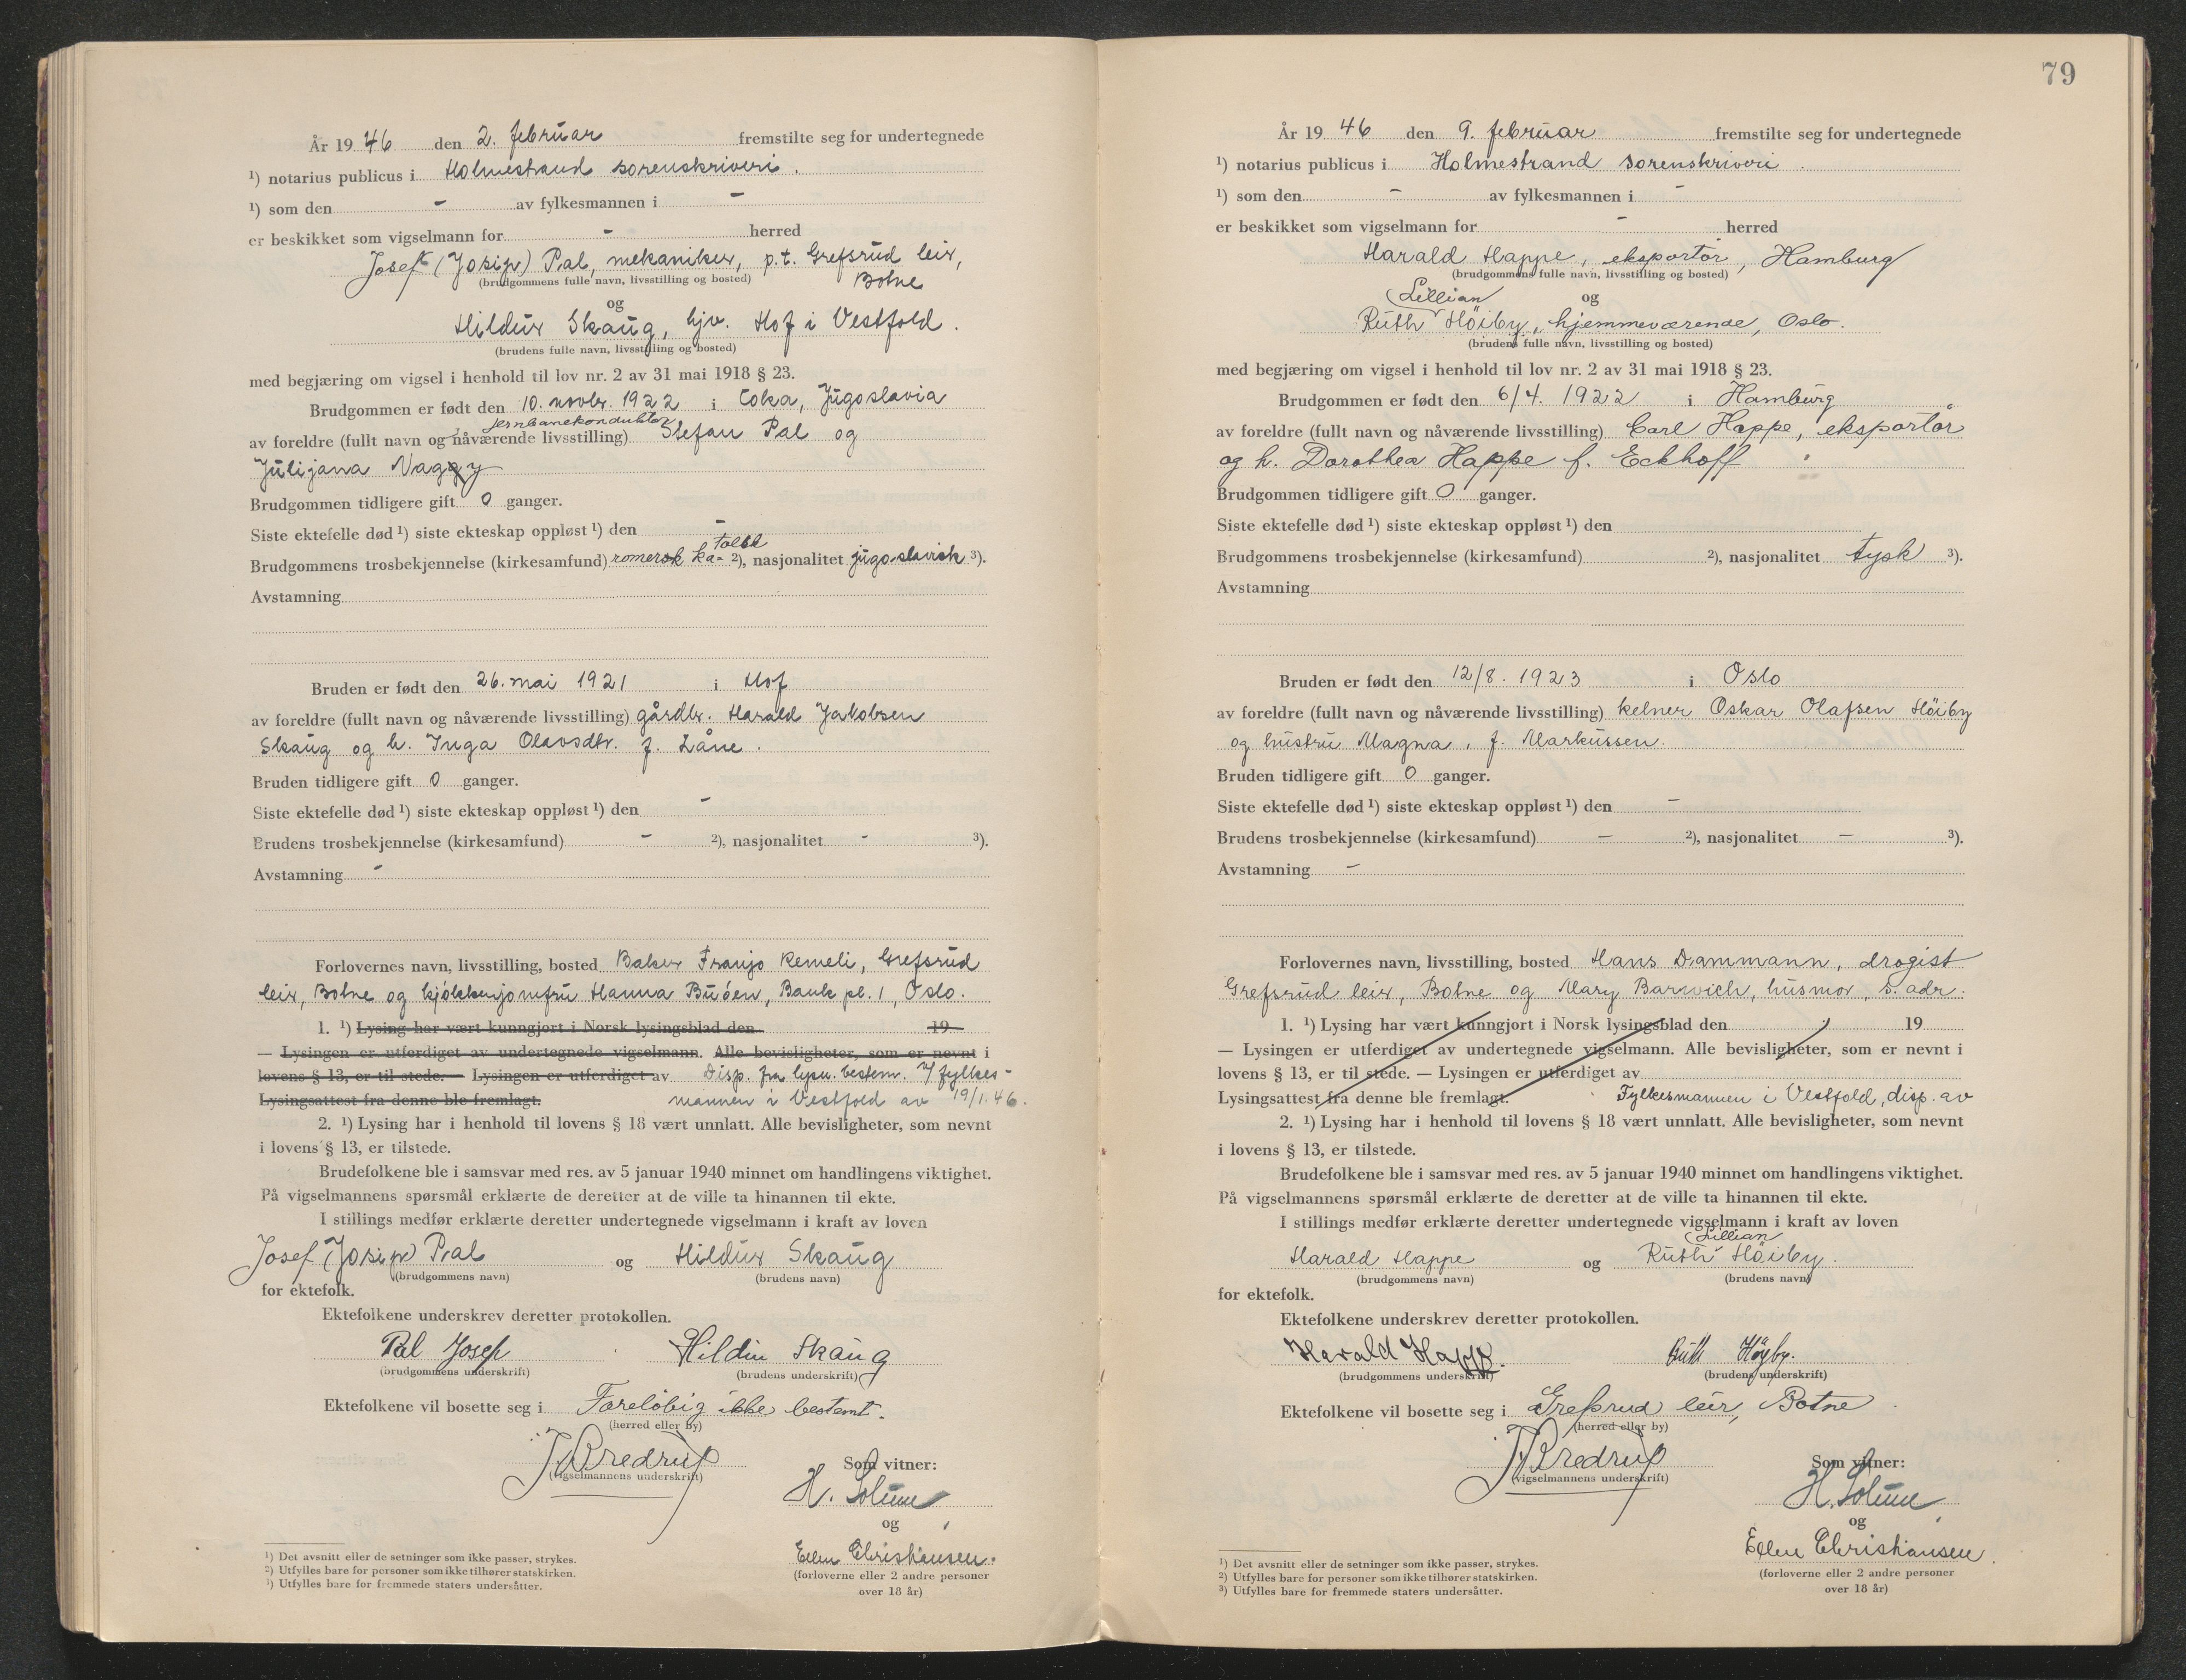 År 19 46 den 2. februar fremstilte seg for undertegnede
¹) notarius publicus i Holmestrand sorenskriveri.
¹) som den - av fylkesmannen i -
er beskikket som vigselmann for - herred
Josef (Josip) Pal, mekaniker, p.t. Grefsrud leir,
(brudgommens fulle navn, livsstilling og bosted) Botne
og
Hildur Skaug, hjv. Hof i Vestfold.
(brudens fulle navn, livsstilling og bosted)
med begjæring om vigsel i henhold til lov nr. 2 av 31 mai 1918 § 23.
Brudgommen er født den 10. novbr. 1922 i Coka, Jugoslavia
jernbanekonduktør
av foreldre (fullt navn og nåværende livsstilling) Stefan Pal og
Julijana Naggy
Brudgommen tidligere gift 0 ganger.
Siste ektefelle død ¹) siste ekteskap oppløst ¹) den -
tolsk
Brudgommens trosbekjennelse (kirkesamfund) romersk ka- ²), nasjonalitet jugoslavisk ³).
Avstamning
Bruden er født den 26. mai 1921 i Hof
av foreldre (fullt navn og nåværende livsstilling) gårdbr. Harald Jakobsen
Skaug og h. Inga Olavsdtr. f. Låne.
Bruden tidligere gift 0 ganger.
Siste ektefelle død ¹) siste ekteskap oppløst ¹) den -
Brudens trosbekjennelse (kirkesamfund) - ²), nasjonalitet - ³).
Avstamning -
Forlovernes navn, livsstilling, bosted Baker Franjo Remeli, Grefsrud
leir, Botne og kjøkkenjomfru Hanna Buøen, Bank pl. 1, Oslo.
1. ¹) Lysing har vært kunngjort i Norsk lysingsblad den 19
— Lysingen er utferdiget av undertegnede vigselmann. Alle bevisligheter, som er nevnt i
lovens § 13, er til stede. — Lysingen er utferdiget av Disp. fra lysn. bestem. v/ fylkes-
Lysingsattest fra denne ble fremlagt. mannen i Vestfold av 19/1.46.
2. ¹) Lysing har i henhold til lovens § 18 vært unnlatt. Alle bevisligheter, som nevnt
i lovens § 13, er tilstede.
Brudefolkene ble i samsvar med res. av 5 januar 1940 minnet om handlingens viktighet.
På vigselmannens spørsmål erklærte de deretter at de ville ta hinannen til ekte.
I stillings medfør erklærte deretter undertegnede vigselmann i kraft av loven
Josef (Josip) Pal og Hildur Skaug
(brudgommens navn) (brudens navn)
for ektefolk.
Ektefolkene underskrev deretter protokollen.
Pal Josep Hildur Skaug
(brudgommens underskrift) (brudens underskrift)
Ektefolkene vil bosette seg i Foreløbig ikke bestemt.
(herred eller by)
J. Bredrup
(vigselmannens underskrift)
Som vitner:
H. Solum
og
Ellen Christiansen.
(forloverne eller 2 andre personer
over 18 år)
¹) Det avsnitt eller de setninger som ikke passer, strykes.
²) Utfylles bare for personer som ikke tilhører statskirken.
³) Utfylles bare for fremmede staters undersåtter.
79
År 19 46 den 9. februar fremstilte seg for undertegnede
¹) notarius publicus i Holmestrand sorenskriveri.
¹) som den - av fylkesmannen i -
er beskikket som vigselmann for - herred
Harald Happe, eksportør, Hamburg
(brudgommens fulle navn, livsstilling og bosted)
Lillian og
Ruth Höiby, hjemmeværende, Oslo.
(brudens fulle navn, livsstilling og bosted)
med begjæring om vigsel i henhold til lov nr. 2 av 31 mai 1918 § 23.
Brudgommen er født den 6/4. 1922 i Hamburg
av foreldre (fullt navn og nåværende livsstilling) Carl Happe, eksportør
og h. Dorothea Happe f. Eckhoff
Brudgommen tidligere gift 0 ganger.
Siste ektefelle død ¹) siste ekteskap oppløst ¹) den
Brudgommens trosbekjennelse (kirkesamfund) ²), nasjonalitet tysk ³).
Avstamning
Bruden er født den 12/8. 1923 i Oslo
av foreldre (fullt navn og nåværende livsstilling) kelner Oskar Olafsen Höiby
og hustru Magna, f. Markussen.
Bruden tidligere gift 0 ganger.
Siste ektefelle død ¹) siste ekteskap oppløst ¹) den -
Brudens trosbekjennelse (kirkesamfund) - ²), nasjonalitet - ³).
Avstamning -
Forlovernes navn, livsstilling, bosted Hans Dammann, drogist
Grefsrud leir, Botne og Mary Barwich, husmor, s. adr.
1. ¹) Lysing har vært kunngjort i Norsk lysingsblad den 19
— Lysingen er utferdiget av undertegnede vigselmann. Alle bevisligheter, som er nevnt i
lovens § 13, er til stede. — Lysingen er utferdiget av
Lysingsattest fra denne ble fremlagt. Fylkesmannen i Vestfold, disp. av
2. ¹) Lysing har i henhold til lovens § 18 vært unnlatt. Alle bevisligheter, som nevnt
i lovens § 13, er tilstede.
Brudefolkene ble i samsvar med res. av 5 januar 1940 minnet om handlingens viktighet.
På vigselmannens spørsmål erklærte de deretter at de ville ta hinannen til ekte.
I stillings medfør erklærte deretter undertegnede vigselmann i kraft av loven
Lillian
Harald Happe og Ruth Höiby.
(brudgommens navn) (brudens navn)
for ektefolk.
Ektefolkene underskrev deretter protokollen.
Harald Happe. Ruth Höyby.
(brudgommens underskrift) (brudens underskrift)
Ektefolkene vil bosette seg i Grefsrud leir, Botne
(herred eller by)
J. Bredrup
(vigselmannens underskrift)
Som vitner:
H. Solum
og
Ellen Christiansen.
(forloverne eller 2 andre personer
over 18 år)
¹) Det avsnitt eller de setninger som ikke passer, strykes.
²) Utfylles bare for personer som ikke tilhører statskirken.
³) Utfylles bare for fremmede staters undersåtter.